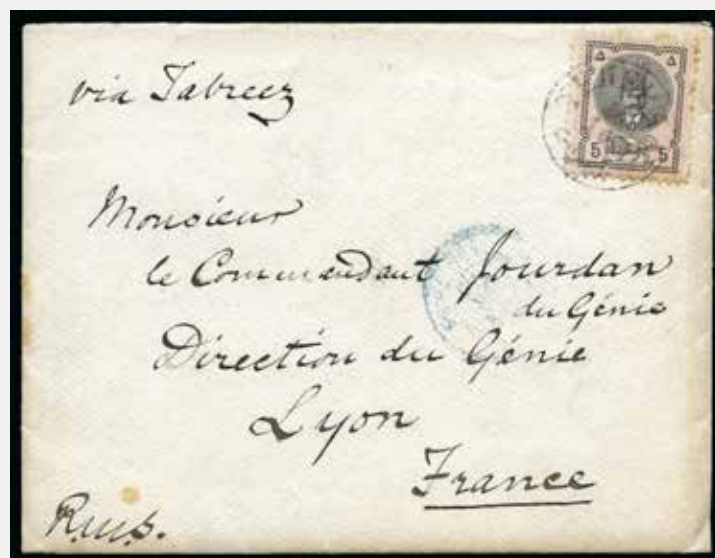 via Tabreez
5 5
Monsieur
le Commandant Jourdan
du Génie
Direction du Génie
Lyon
France